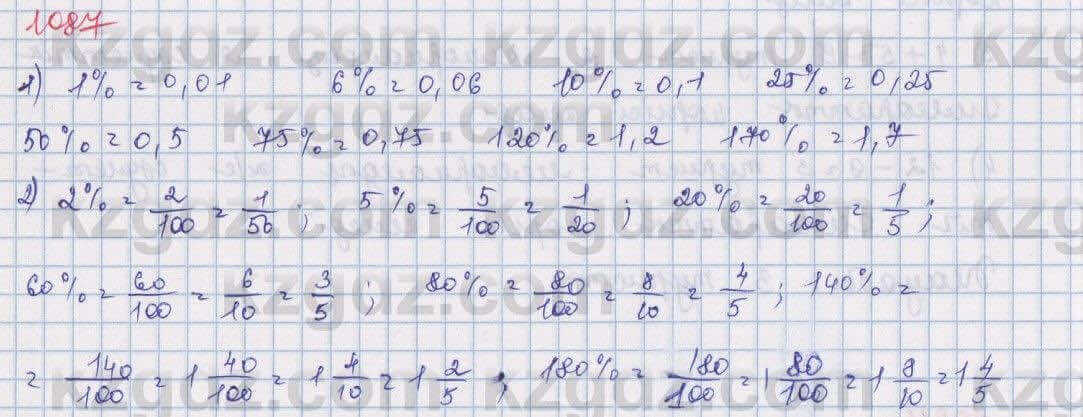 1087
1) 1% = 0,01 6% = 0,06 10% = 0,1 25% = 0,25
50% = 0,5 75% = 0,75 120% = 1,2 170% = 1,7
2) 2% = 2/100 = 1/50; 5% = 5/100 = 1/20; 20% = 20/100 = 1/5;
60% = 60/100 = 6/10 = 3/5; 80% = 80/100 = 8/10 = 4/5; 140% =
= 140/100 = 1 40/100 = 1 4/10 = 1 2/5; 180% = 180/100 = 1 80/100 = 1 8/10 = 1 4/5
kzgdz.com